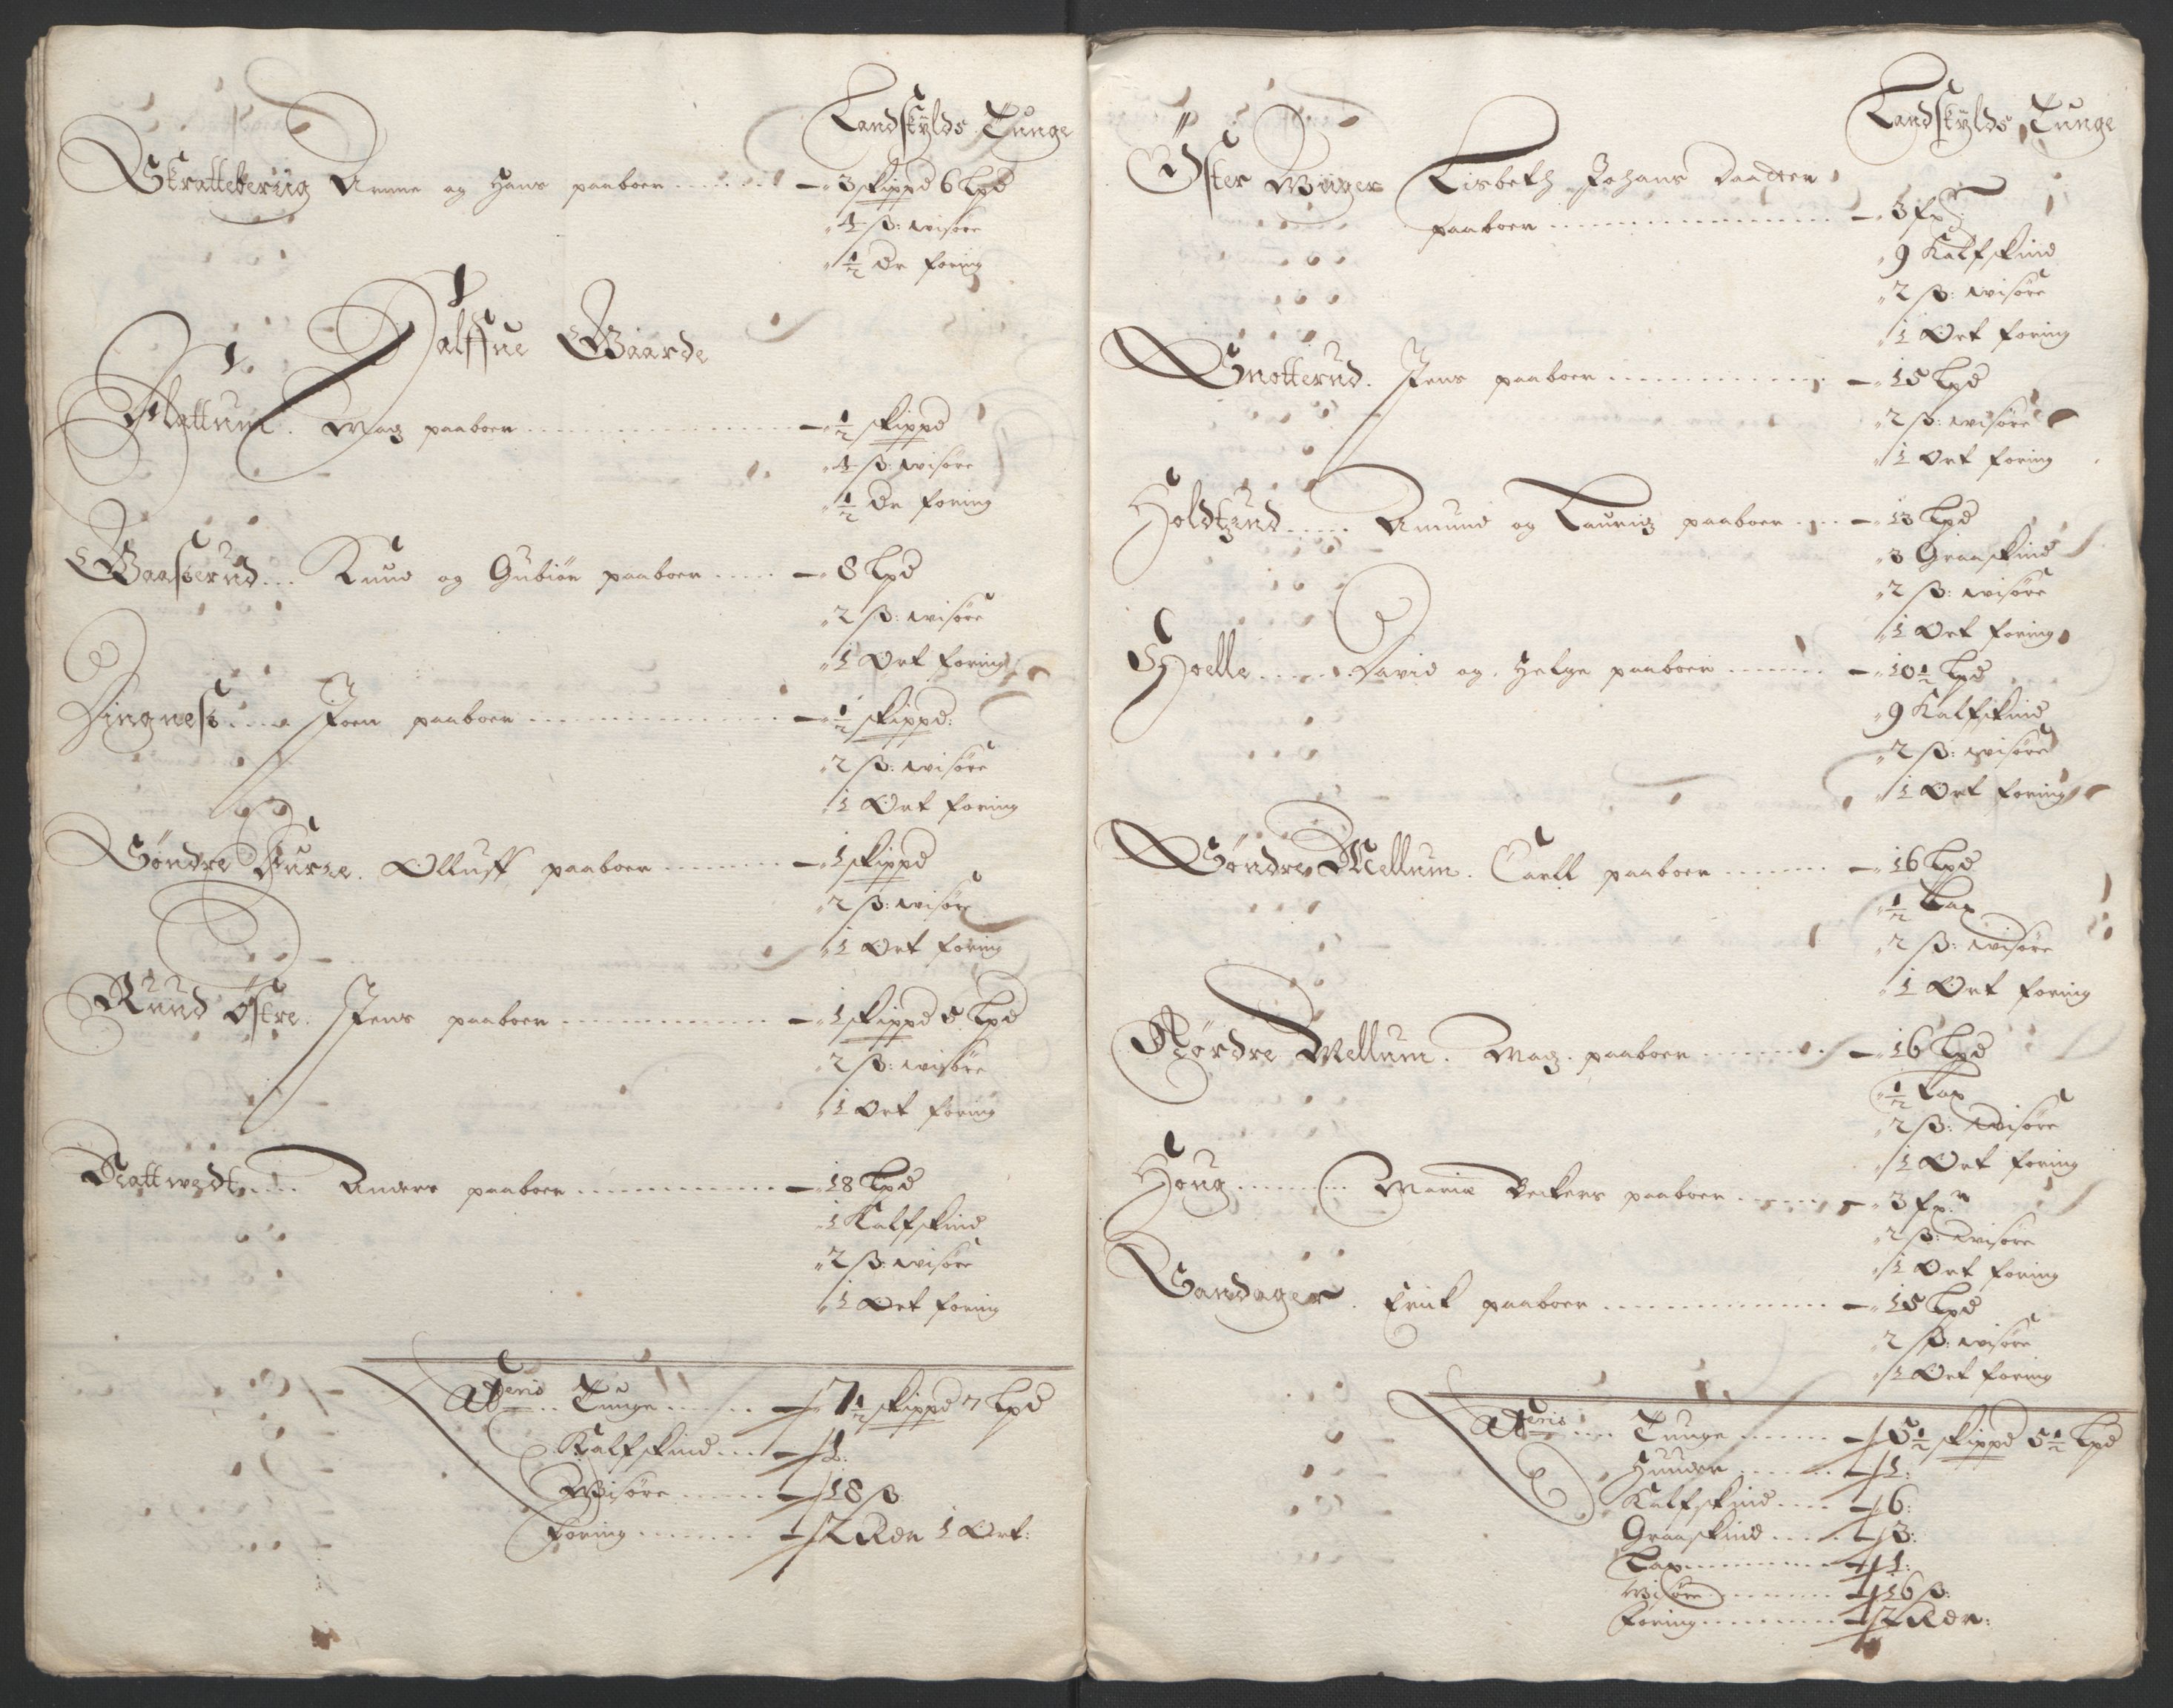 Landskylds Tunge
Skratteberiig Anne og Hans paaboer ........ 3 skippd 6 lpd
4 ß: wisøre
½ Dr foring
Halffue Gaarde
Nattum. Madz paaboer ........ ½ skippd
4 ß: wisøre
½ Dr foring
Gaaserud... Knud og Gubiør paaboer ..... 8 lpd
2 ß: wisøre
1 Ort foring
Dingness.... Joen paaboer ........ ½ skippd:
2 ß: wisøre
1 Ort foring
Søndre Furze. Olluff paaboer ........ 1 skippd
2 ß: wisøre
1 Ort foring
Ruud Østre. Jens paaboer ........ 1 skippd 5 lpd
2 ß: wisøre
1 Ort foring
Nattwedt..... Anders paaboer ........ 18 lpd
1 Kalfskind
2 ß: wisøre
1 Ort foring
Tunge ...... 7½ skippd 7 lpd
Kalfskind ... 1:
Wisøre ...... 18 ß
foring ........ 2 Rdr 1 Ort:
Landskylds Tunge
Øster Wiiger Lisbeth Johans Daatter
paaboer ........ 3 fxr
9 Kalfskind
2 ß: wisøre
1 Ort foring
Snotterud. Jens paaboer ........ 15 lpd
2 ß: wisøre
1 Ort foring
Holdtzund..... Amund og Lauridz paaboer .... 13 lpd
3 Graaskind
2 ß: wisøre
1 Ort foring
Hoelle....... David og Helge paaboer ........ 10½ lpd
9 Kalfskind
2 ß: wisøre
1 Ort foring
Søndre Mellum. Carll paaboer ........ 16 lpd
½ Lax
2 ß: wisøre
1 Ort foring
Nørdre Mellum. Madz. paaboer ........ 16 lpd
½ Lax
2 ß: wisøre
1 Ort foring
Houg.......... Maria Beckers paaboer ....... 3 fxr
2 ß: wisøre
1 Ort foring
Sandager. Erick paaboer ........ 15 lpd
2 ß: wisøre
1 Ort foring
Tunge ...... 5½ skippd 5½ lpd
Huuder ....... 1:
Kalfskind .... 6:
Graaskind .... 3:
Lax .......... 1:
Wisøre ....... 16 ß:
Foring ....... 2 Rdr: